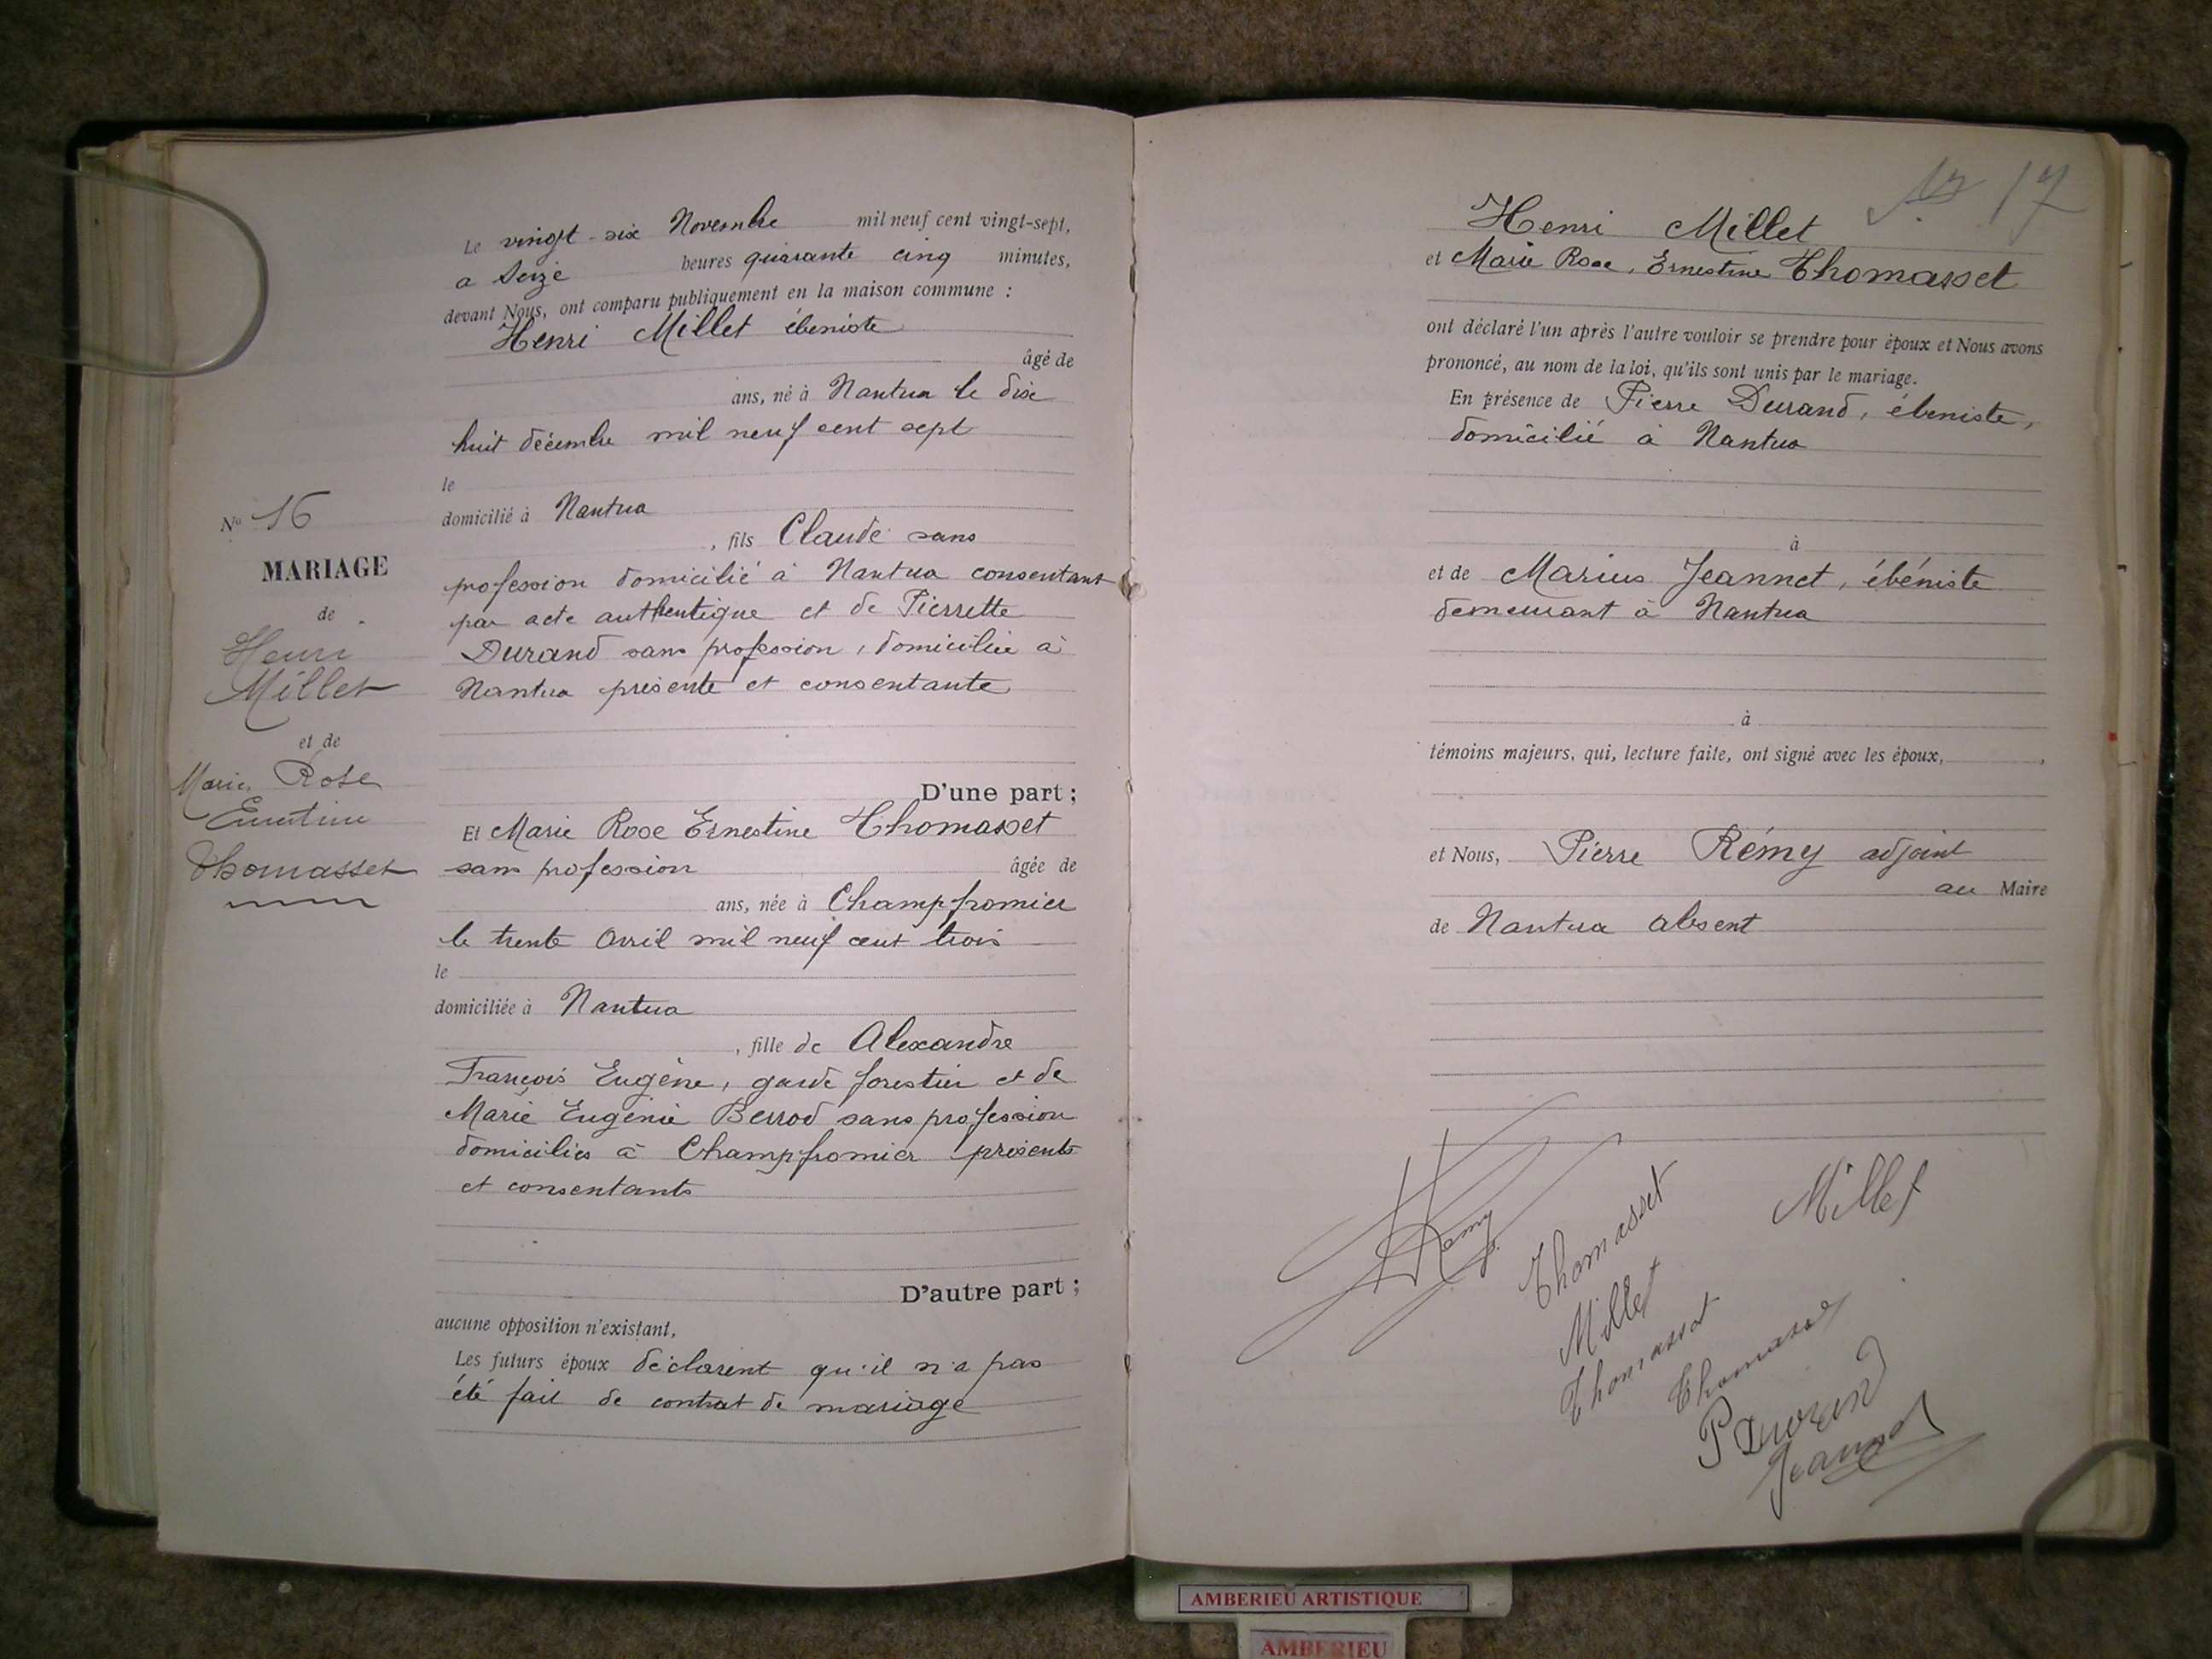 Le vingt-six Novembre mil neuf cent vingt-sept,
a Seize heures quarante cinq minutes,
devant Nous, ont comparu publiquement en la maison commune :
Henri Millet ébeniste
âgé de
ans, né à Nantua le dix
huit décembre mil neuf cent sept
le
domicilié à Nantua
, fils Claude sans
profession domicilié à Nantua consentant
par acte authentique et de Pierrette
Durand sans profession, domiciliée à
Nantua présente et consentante
D'une part ;
Et Marie Rose Ernestine Thomasset
sans profession âgée de
ans, née à Champfromier
le trente Avril mil neuf cent trois
le
domiciliée à Nantua
, fille de Alexandre
François Eugène, garde forestier et de
Marie Eugénie Berrod sans profession
domiciliés à Champfromier présents
et consentants
D'autre part ;
aucune opposition n'existant,
Les futurs époux déclarent qu'il n'a pas
été fait de contrat de mariage
No 16
MARIAGE
de
Henri
Millet
et de
Marie Rose
Ernestine
Thomasset
17
Henri Millet
et Marie Rose, Ernestine Thomasset
ont déclaré l'un après l'autre vouloir se prendre pour époux et Nous avons
prononcé, au nom de la loi, qu'ils sont unis par le mariage.
En présence de Pierre Durand, ébeniste,
domicilié à Nantua
à
et de Marius Jeannet, ébéniste
demeurant à Nantua
à
témoins majeurs, qui, lecture faite, ont signé avec les époux,
et Nous, Pierre Rémy adjoint
au Maire
de Nantua absent
Remy
Thomasset
Millet
Millet
Thomasset
Thomasset
P Durand
Jeannet
AMBERIEU ARTISTIQUE
AMBERIEU